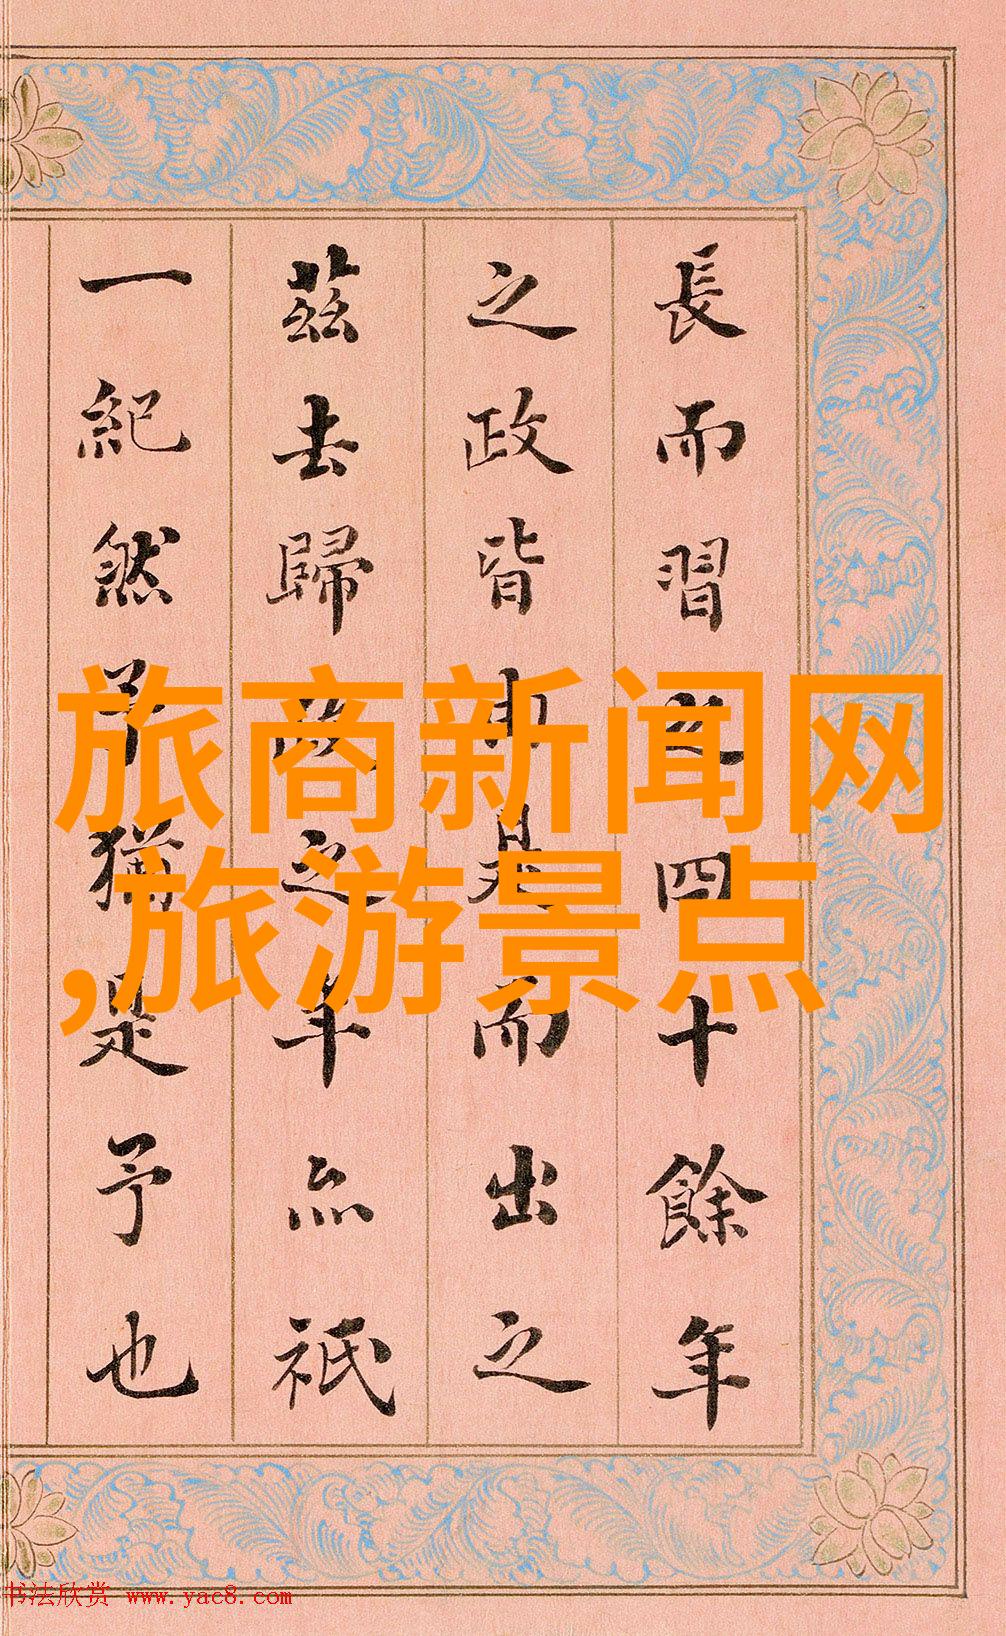 長而習之四十餘年
之政皆由是而出之
茲去歸政之年亦祇
一紀然予猶是予也
旅商新闻网
,旅游景点
书法欣赏 www.yac8.com